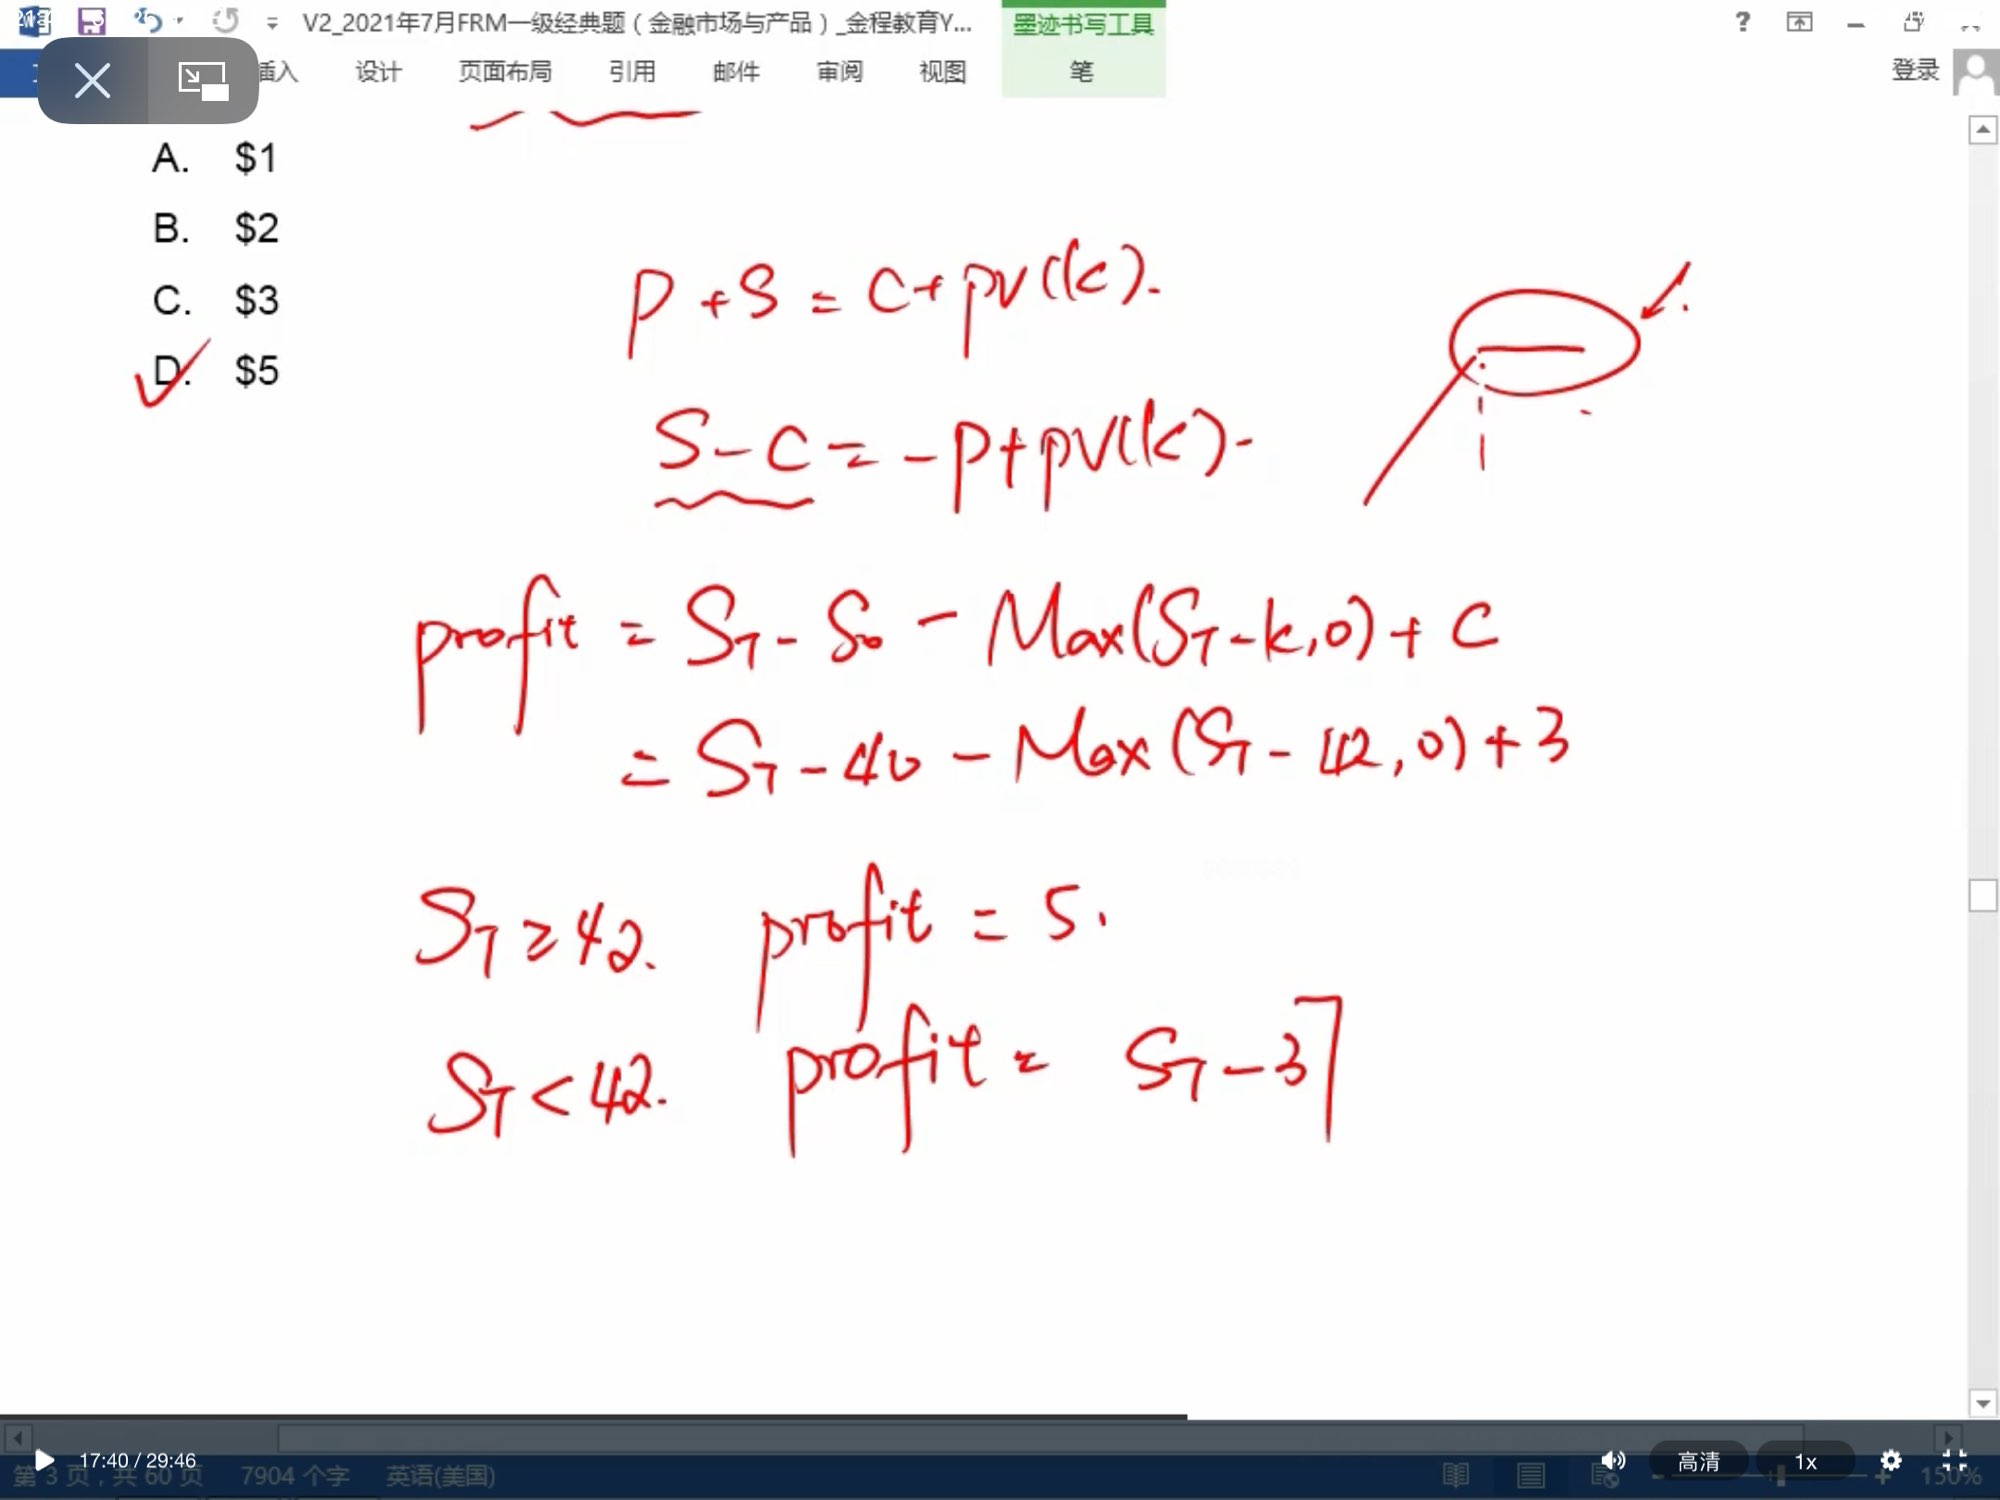 V2_2021年7月FRM一级经典题（金融市场与产品）_金程教育Y... 墨迹书写工具 ?
插入 设计 页面布局 引用 邮件 审阅 视图 笔 登录
A. $1
B. $2
C. $3
D. $5
P + S = C + PV(K).
S - C = -P + PV(K).
profit = ST - S0 - Max(ST - K, 0) + C
= ST - 40 - Max(ST - 42, 0) + 3
ST ≥ 42. profit = 5.
ST < 42. profit = ST - 37
17:40 / 29:46 高清 1x
第 3 页，共 60 页 7904 个字 英语(美国) 150%